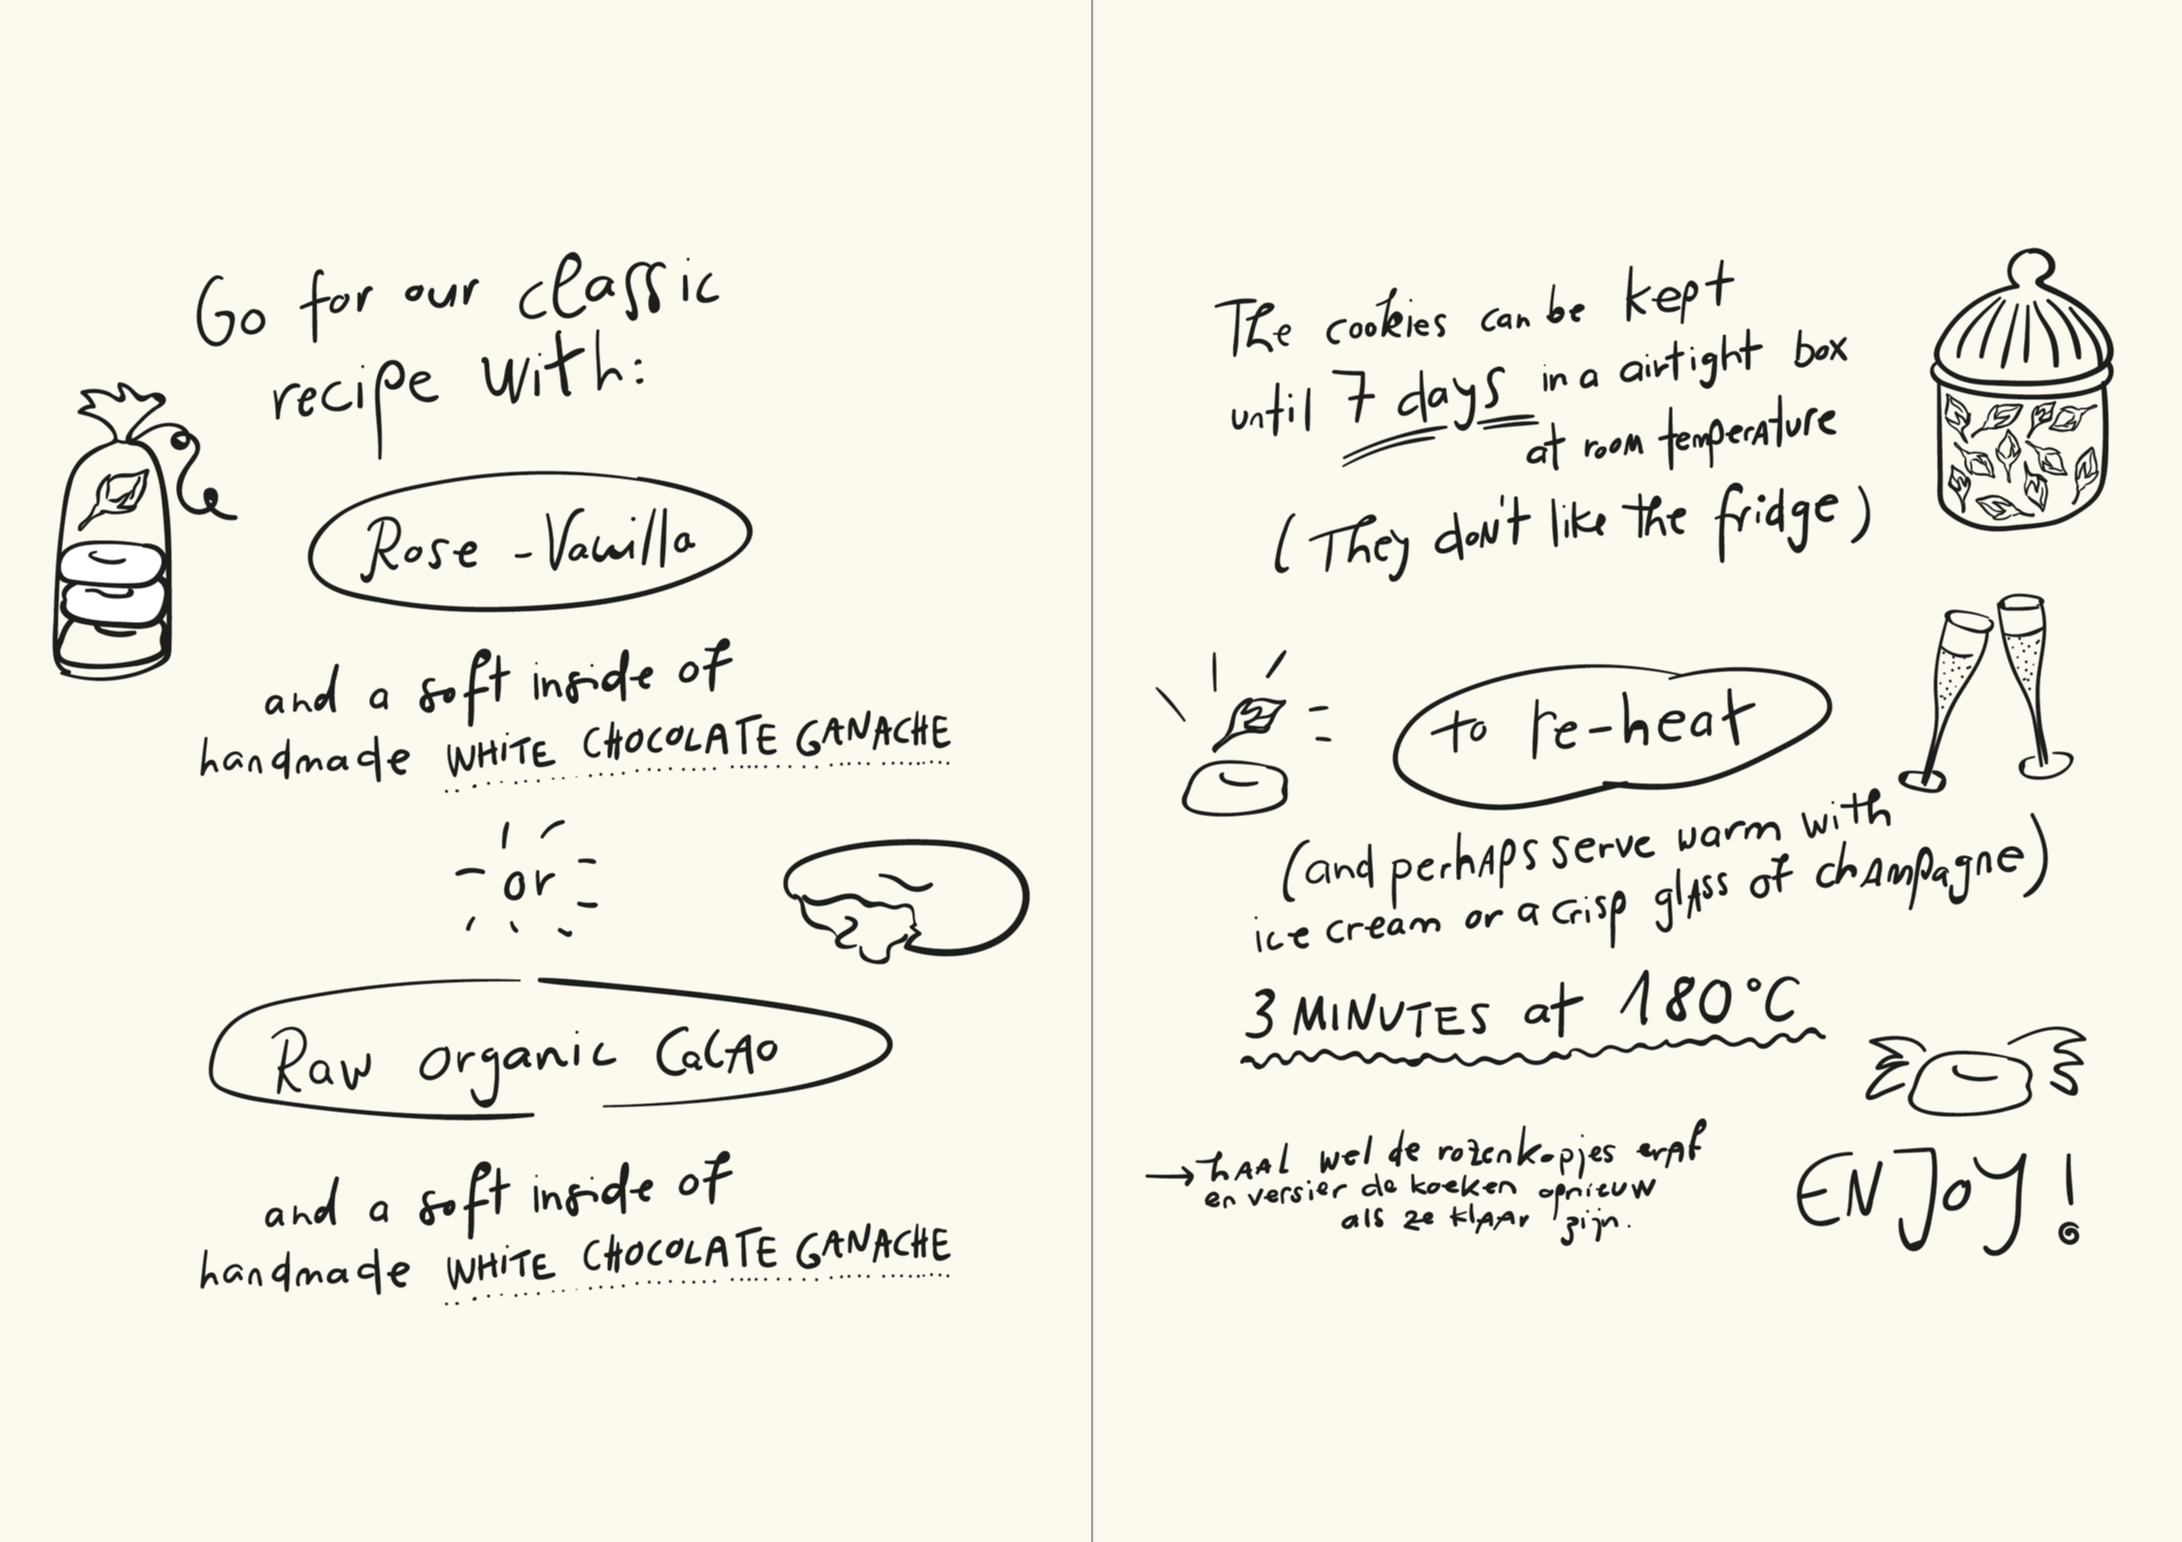 Go for our classic
recipe with:
Rose - Vanilla
and a soft inside of
handmade WHITE CHOCOLATE GANACHE
or
Raw organic CaCAo
and a soft inside of
handmade WHITE CHOCOLATE GANACHE
The cookies can be kept
until 7 days in a airtight box
at room temperature
(They don't like the fridge)
to re-heat
(and perhaps serve warm with
ice cream or a crisp glass of champagne)
3 MINUTES at 180°C
→ hAAL wel de rozenkopjes erAf
en versier de koeken opnieuw
als ze klAAr zijn.
ENJoY!